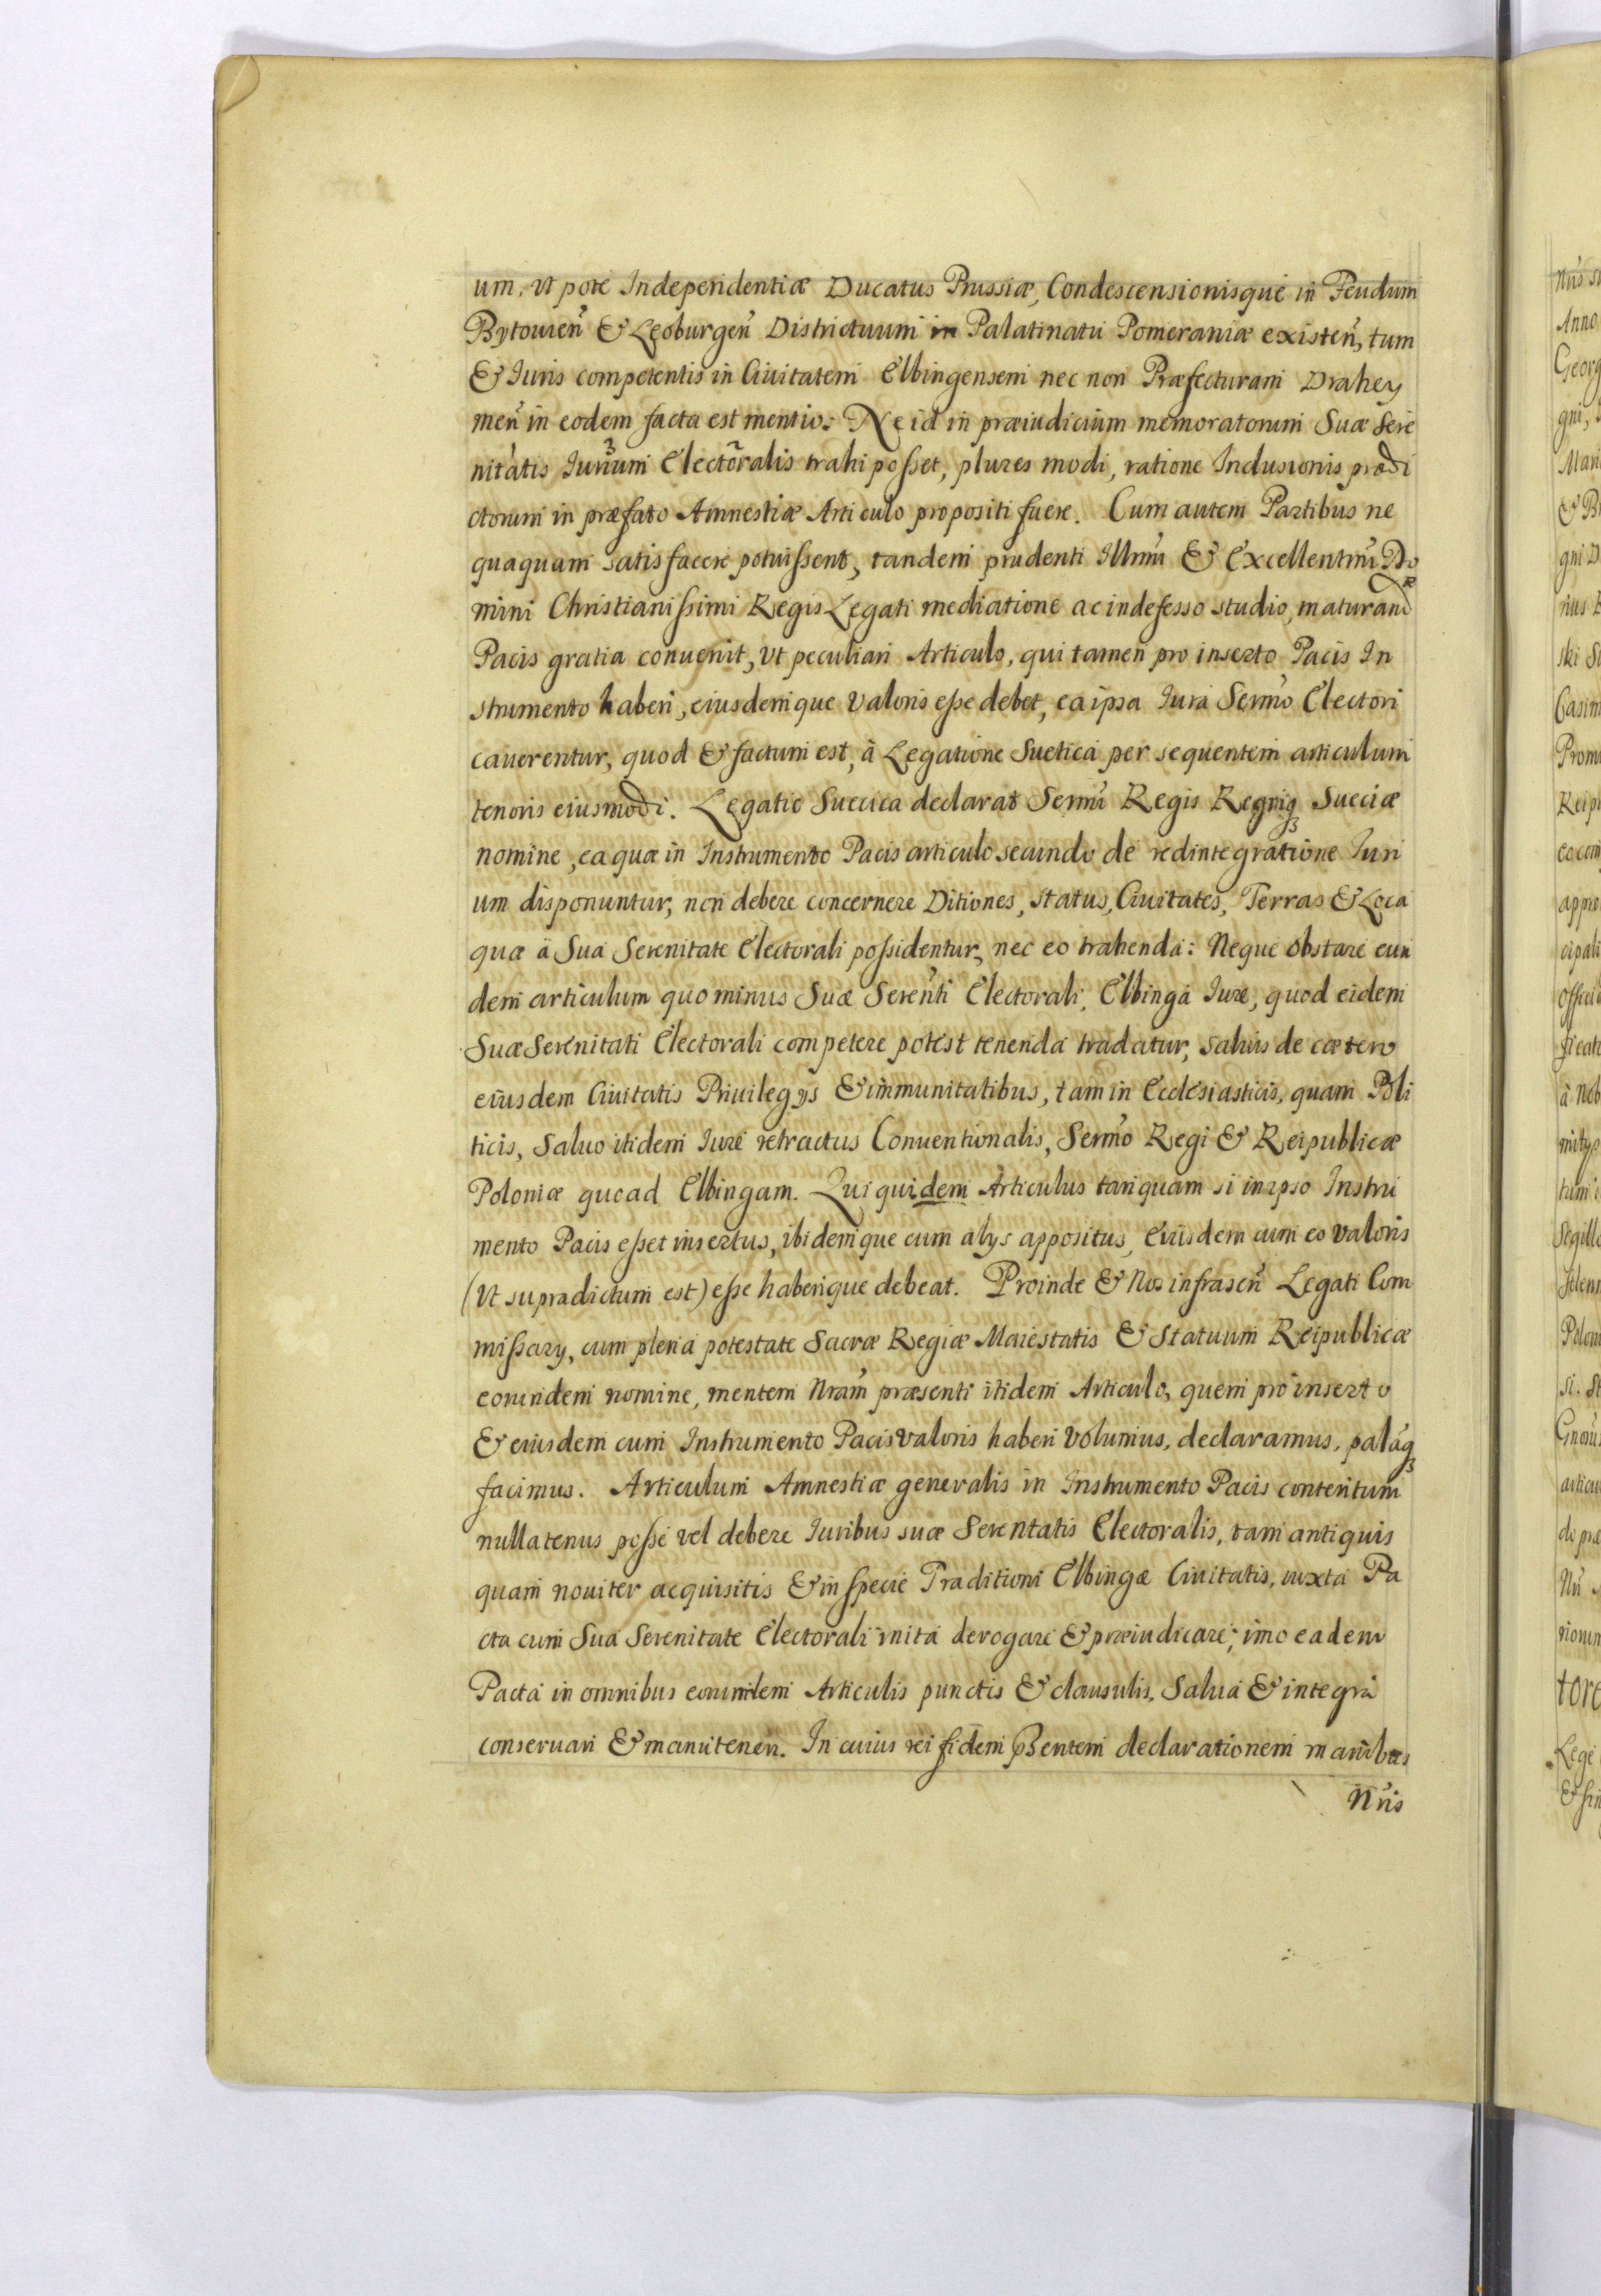 um, ut pote Independentiæ Ducatus Prussiæ, Condescensionisque in Feudum
Bytouień & Leoburgeń Districtuum in Palatinatu Pomeraniæ existeń, tum
& Iuris competentis in Ciuitatem Elbingensem nec non Præfecturam Drahey
meń in eodem facta est mentio: Ne id in præiudicium memoratorum Suæ Sere
nitatis Iurium Electoralis trahi posset, plures modi, ratione Inclusionis prædi
ctorum in præfato Amnestiæ Articulo propositi fuere. Cum autem Partibus ne
quaquam satisfacere potuissent, tandem prudenti Illmi & Excellentmi Do
mini Christianissimi Regis Legati mediatione ac indefesso studio, maturandæ
Pacis gratia conuenit, Ut peculiari Articulo, qui tamen pro inserto Pacis In
strumento haberi, eiusdemque valoris esse debet, ea ipsa Iura Sermo Electori
cauerentur, quod & factum est, à Legatione Suetica per sequentem articulum
tenoris eiusmodi. Legatio Suecica declarat Sermi Regis Regniq3 Sueciæ
nomine, ea quæ in Instrumento Pacis articulo secundo de redintegratione Iuri
um disponuntur, non debere concernere Ditiones, status, Ciuitates, Terras & Loca
quæ à Sua Serenitate Electorali possidentur, nec eo trahenda: Neque obstare eun
dem articulum quo minus Suæ Serenti Electorali, Elbinga Iure, quod eidem
Suæ Serenitati Electorali competere potest tenenda tradatur, saluis de cætero
eiusdem Ciuitatis Priuilegijs & immunitatibus, tam in Ecclesiasticis, quam Poli
ticis, Saluo itidem Iure retractus Conuentionalis, Sermo Regi & Reipublicæ
Poloniæ quoad Elbingam. Qui quidem Articulus tanquam si in ipso Instru
mento Pacis esset insertus, ibidemque cum alys appositus, Eiusdem cum eo valoris
(Ut supradictum est) esse haberique debeat. Proinde & Nos infrascń Legati Com
missary, cum plena potestate Sacræ Regiæ Maiestatis & Statuum Reipublicæ
eorundem nomine, mentem Nram præsenti itidem Articulo, quem pro inserto
& eiusdem cum Instrumento Pacis valoris haberi volumus, declaramus, palāq3
facimus. Articulum Amnestiæ generalis in Instrumento Pacis contentum
nullatenus posse vel debere Iuribus suæ Serentatis Electoralis, tam antiquis
quam nouiter acquisitis & in specie Traditioni Elbingæ Ciuitatis, iuxta Pa
cta cum Sua Serenitate Electorali inita derogare & præiudicare; imo eadem
Pacta in omnibus eorundem Articulis punctis & clausulis, Salua & integra
conseruari & manuteneri. In cuius rei fidem pẞentem declarationem manibus
Nris